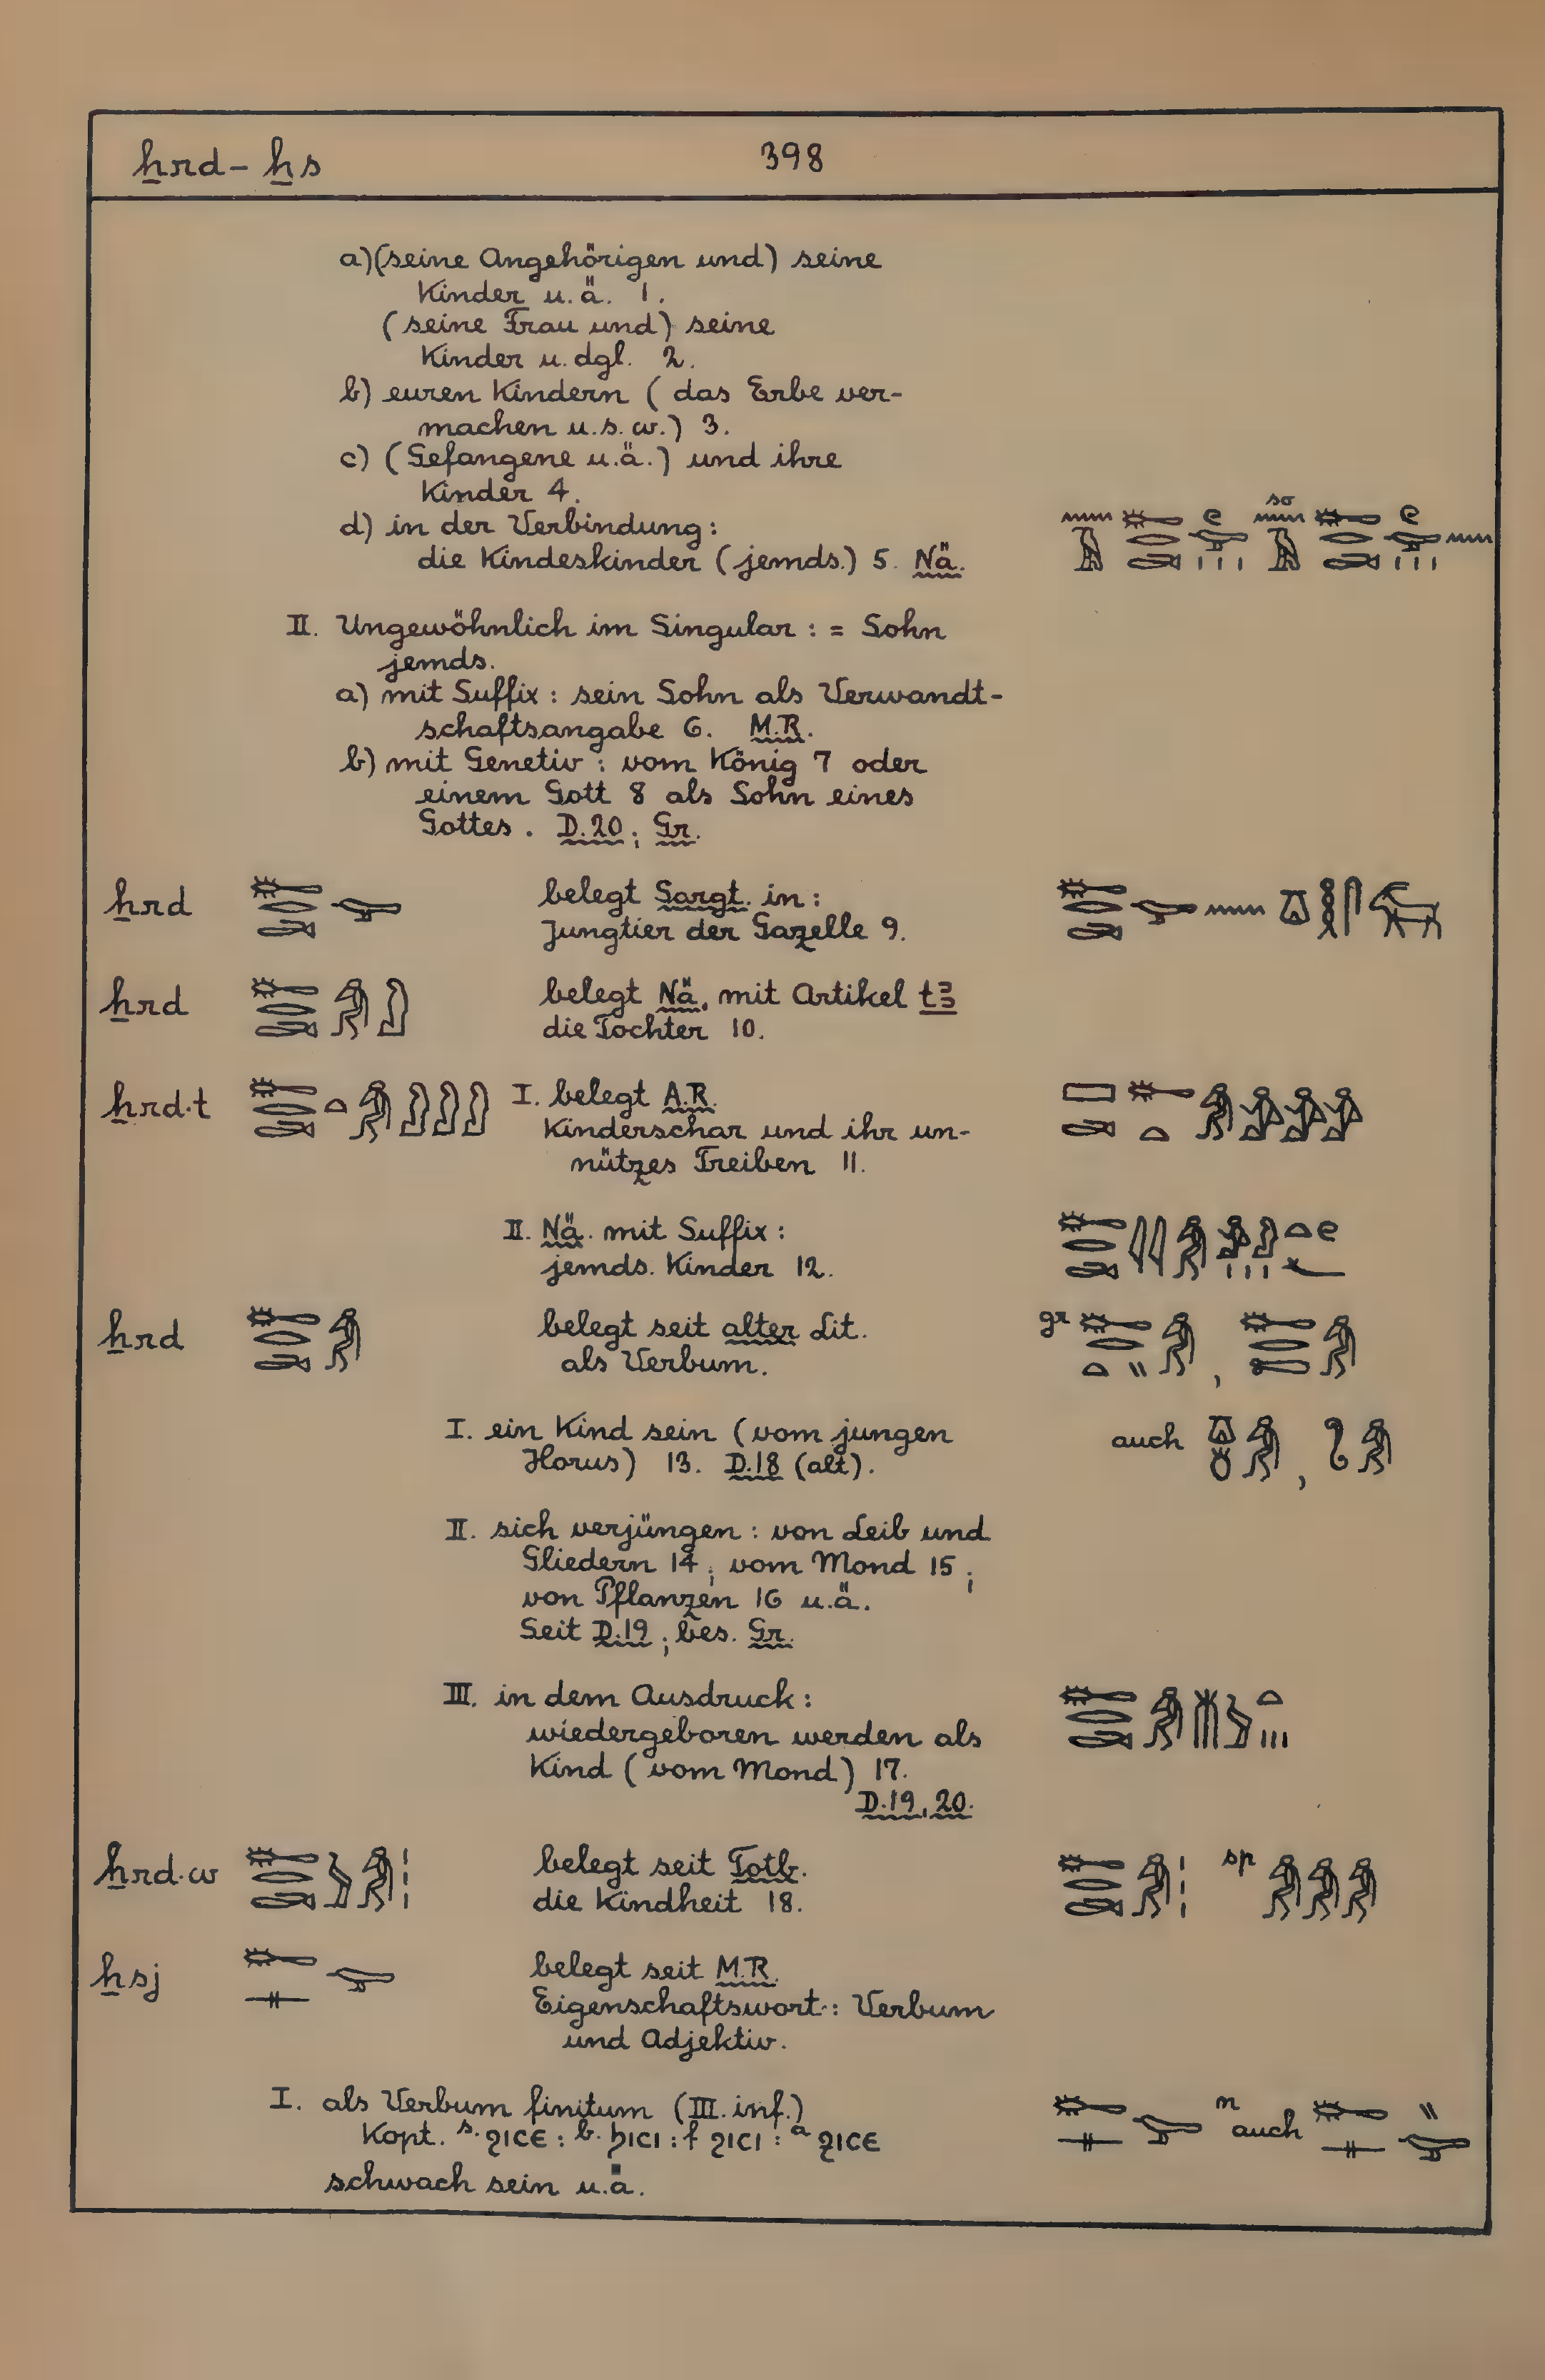 ẖrd – ẖs 398
a) (seine Angehörigen und) seine
Kinder u.ä. 1.
(seine Frau und) seine
Kinder u. dgl. 2.
b) euren Kindern (das Erbe ver-
machen u.s.w.) 3.
c) (Gefangene u.ä.) und ihre
Kinder 4.
d) in der Verbindung: so
die Kindeskinder (jemds.) 5. Nä.
II. Ungewöhnlich im Singular: = Sohn
jemds.
a) mit Suffix: sein Sohn als Verwandt-
schaftsangabe 6. M.R.
b) mit Genetiv: vom König 7 oder
einem Gott 8 als Sohn eines
Gottes. D.20; Gr.
ẖrd belegt Sargt. in:
Jungtier der Gazelle 9.
ẖrd belegt Nä. mit Artikel tꜣ
die Tochter 10.
ẖrd·t I. belegt A.R.
Kinderschar und ihr un-
nützes Treiben 11.
II. Nä. mit Suffix:
jemds. Kinder 12.
ẖrd belegt seit alter Lit. gr ,
als Verbum.
I. ein Kind sein (vom jungen auch ,
Horus) 13. D.18 (alt).
II. sich verjüngen: von Leib und
Gliedern 14; vom Mond 15;
von Pflanzen 16 u.ä.
Seit D.19; bes. Gr.
III. in dem Ausdruck:
wiedergeboren werden als
Kind (vom Mond) 17.
D.19, 20.
ẖrd·w belegt seit Totb. sp
die Kindheit 18.
ẖsj belegt seit M.R.
Eigenschaftswort: Verbum
und Adjektiv.
I. als Verbum finitum (III. inf.) n auch
Kopt. s. ϩⲓⲥⲉ : b. ϧⲓⲥⲓ : f ϩⲓⲥⲓ : a ϩⲓⲥⲉ
schwach sein u.ä.